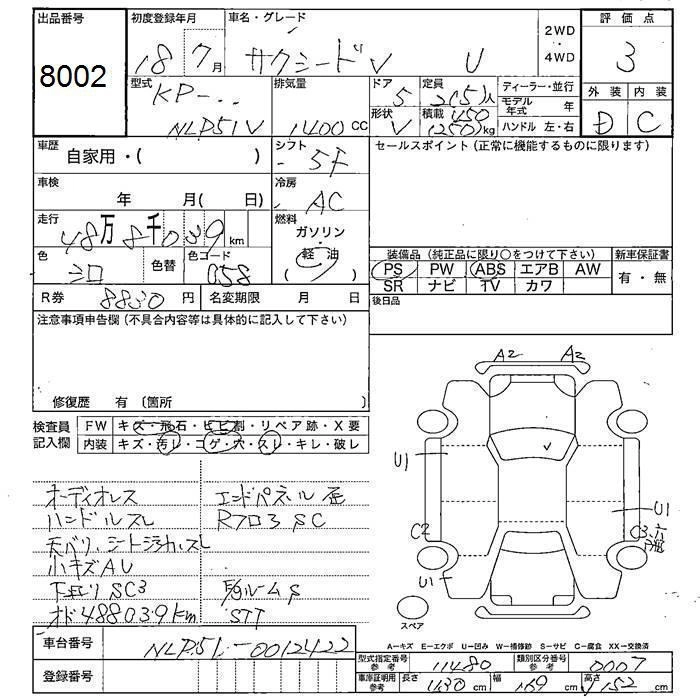 出品番号 8002
初度登録年月 18 7月
車名・グレード サクシードV U
2WD・4WD
評価点 3
型式 KP-‥ NLP51V
排気量 1400 CC
ドア 5
形状 V
定員 2(5)人
積載 450 (250)kg
ディーラー・並行
モデル年式 年
ハンドル 左・右
外装 内装
D C
車歴 自家用・( )
シフト 5F
セールスポイント(正常に機能するものに限ります)
車検 年 月(日)
冷房 AC
走行 48万8千039km
燃料 ガソリン・軽油
色 シロ 色替 色コード 058
装備品(純正品に限り○をつけて下さい) 新車保証書
PS PW ABS エアB AW 有・無
SR ナビ TV カワ
R券 8830円 名変期限 月 日
後日品
注意事項申告欄(不具合内容等は具体的に記入して下さい)
修復歴 有 〔箇所 〕
検査員記入欄
FW キズ・飛石・ヒビ割・リペア跡・X要
内装 キズ・汚レ・コゲ・穴・スレ・キレ・破レ
A2 A2
U1
U1
C2
U1
オーディオレス エンドパネル歪
ハンドルスレ Rフロアsc
天バリ、シート汚れ、スレ
小キズAU
下廻りSC3
オド488039km STT
スペア
A－キズ E－エクボ U－凹み W－補修跡 S－サビ C－腐食 XX－交換済
車台番号 NLP51-0012422
型式指定番号参考 11480 類別区分番号参考 0007
登録番号
車庫証明用参考 長さ 430cm 幅 169cm 高さ 152cm